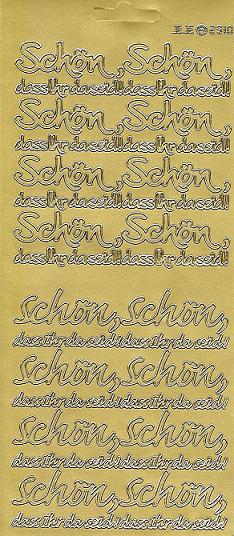 2310
Schön, Schön,
dass Ihr da seid!! dass Ihr da seid!!
Schön, Schön,
dass Ihr da seid!! dass Ihr da seid!!
Schön, Schön,
dass Ihr da seid!! dass Ihr da seid!!
Schön, Schön,
dass Ihr da seid!! dass Ihr da seid!!
Schön, Schön,
dass ihr da seid! dass ihr da seid!
Schön, Schön,
dass ihr da seid! dass ihr da seid!
Schön, Schön,
dass ihr da seid! dass ihr da seid!
Schön, Schön,
dass ihr da seid! dass ihr da seid!